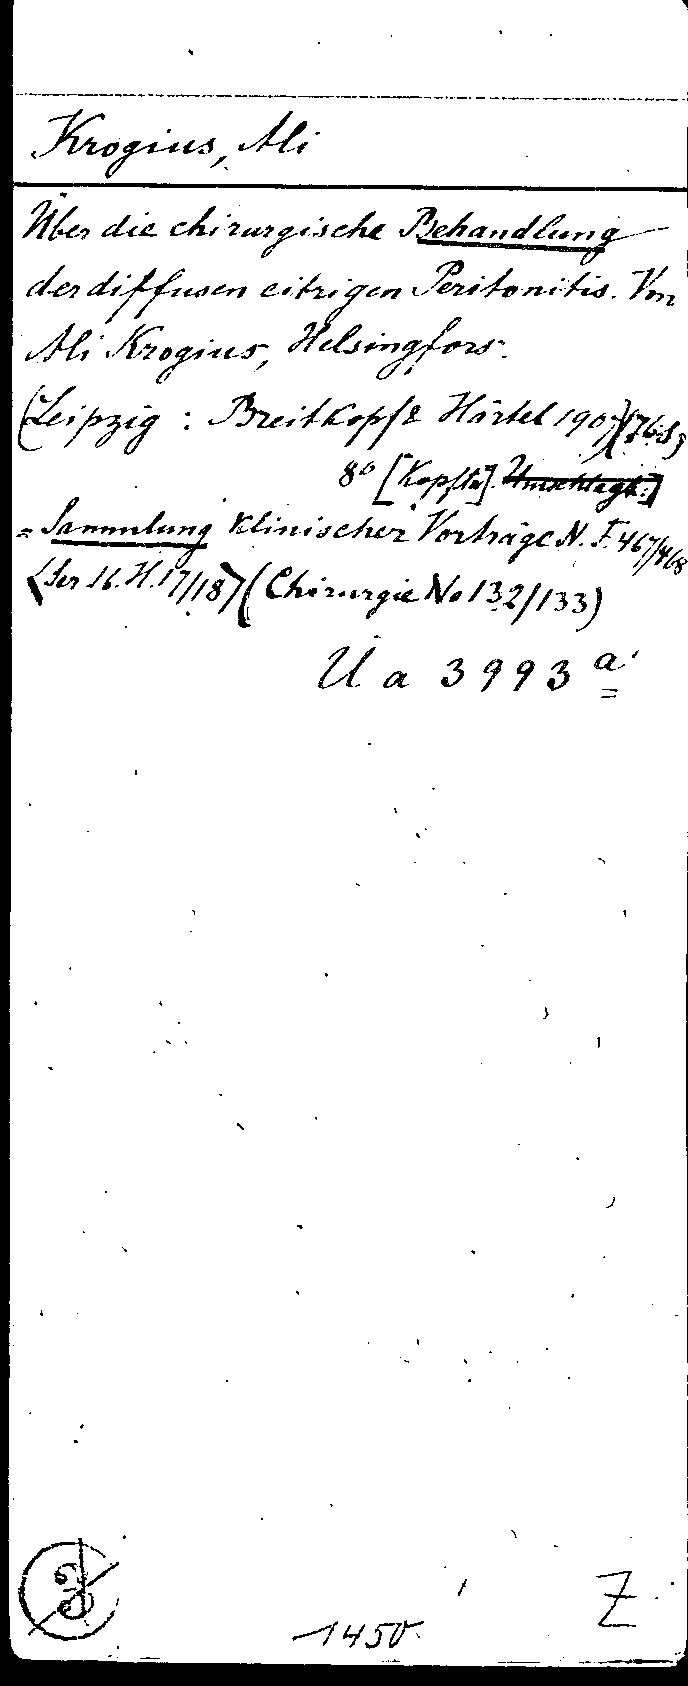 Krogius, Ali
Über die chirurgische Behandlung
der diffusen eitrigen Peritonitis. Von
Ali Krogius, Helsingfors.
(Leipzig: Breitkopf & Härtel 1907) (76 S)
8° [Kopft.] Umschlagt.]
= Sammlung klinischer Vorträge N. F. 467/468
(Ser 16. H. 17/18) (Chirurgie No 132/133)
U a 3993 a
3
1450
Z